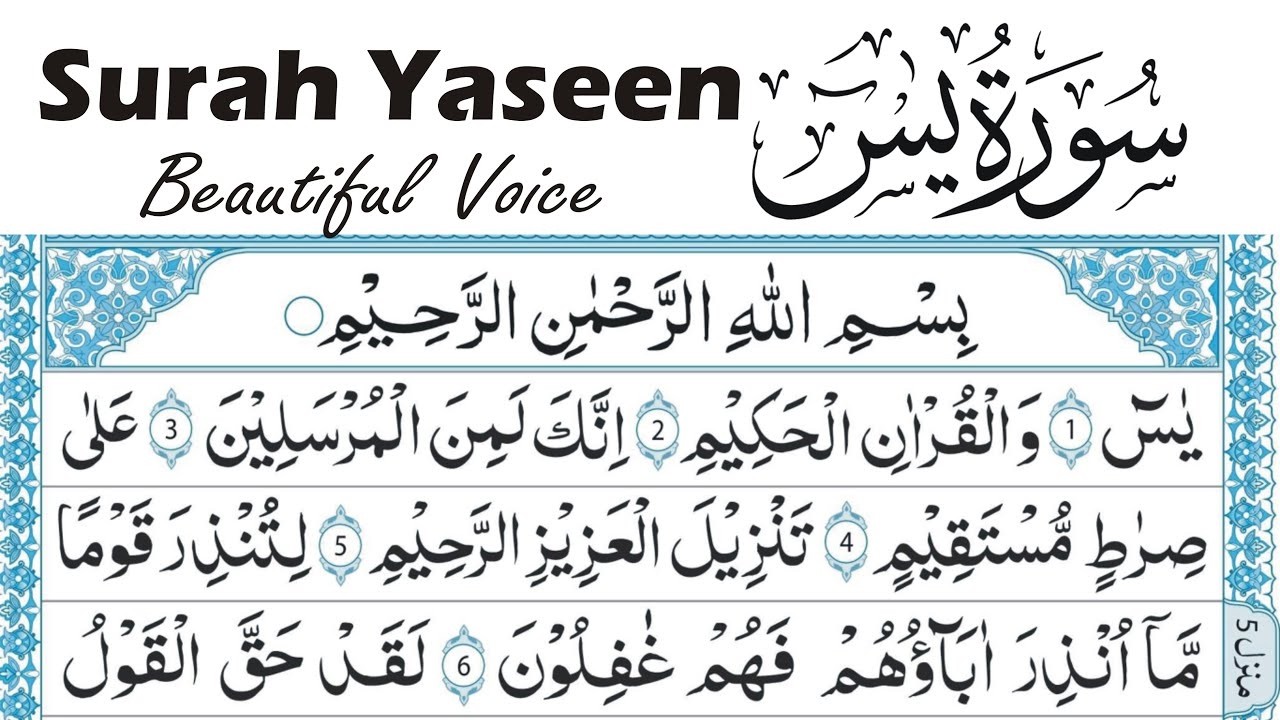 Surah Yaseen
Beautiful Voice
سُورَةُ يٰسٓ
بِسْمِ اللّٰهِ الرَّحْمٰنِ الرَّحِيْمِ
يٰسٓ 1 وَالْقُرْاٰنِ الْحَكِيْمِ 2 اِنَّكَ لَمِنَ الْمُرْسَلِيْنَ 3 عَلٰى
صِرٰطٍ مُّسْتَقِيْمٍ 4 تَنْزِيْلَ الْعَزِيْزِ الرَّحِيْمِ 5 لِتُنْذِرَ قَوْمًا
مَّآ اُنْذِرَ اٰبَآؤُهُمْ فَهُمْ غٰفِلُوْنَ 6 لَقَدْ حَقَّ الْقَوْلُ
منزل 5